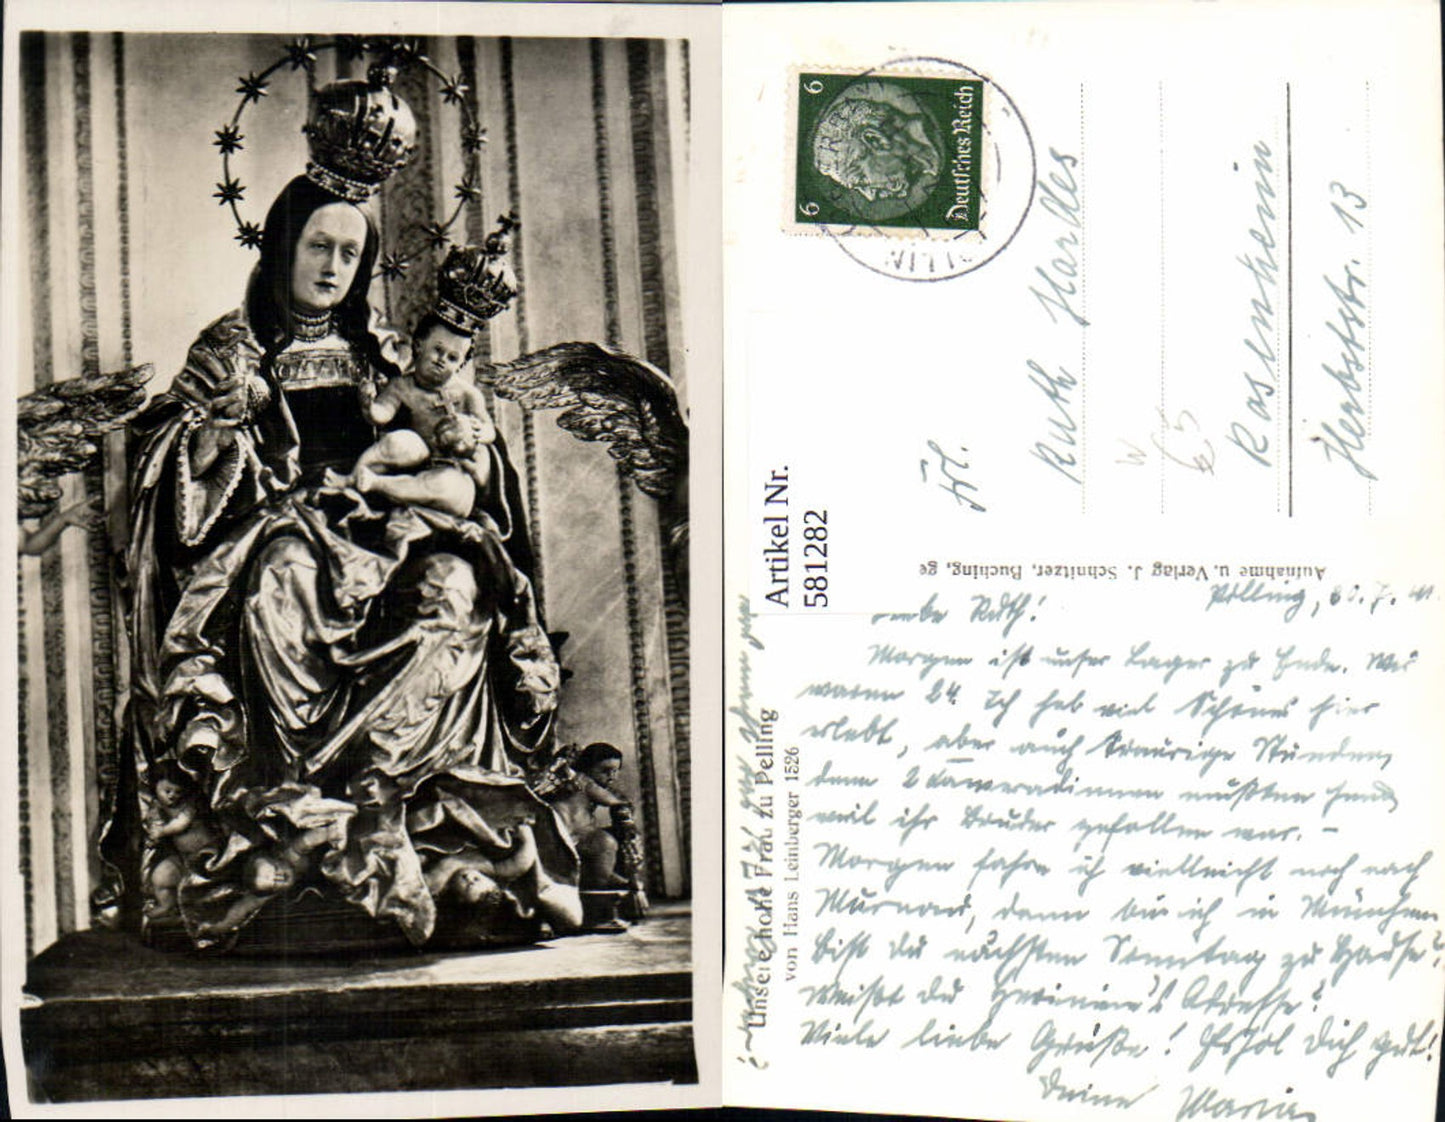 6 6
Deutsches Reich
Frl.
Ruth Hardles
Rosenheim
Herbststr. 13
W
65
Artikel Nr.
581282
Aufnahme u. Verlag J. Schnitzer, Buching, ge
Polling, 7. 41.
Ruth!
Morgen ist unser Lager zu Ende. Wir
waren 24. Ich hab viel Schönes hier
erlebt, aber auch traurige Stunden,
denn 2 Kameradinnen mußten heim,
weil ihr Bruder gefallen war. –
Morgen fahre ich vielleicht noch nach
Murnau, dann bin ich in München
Bist du nächsten Sonntag zu Hause?
Weißt du Adresse?
Viele liebe Grüße! Erhol Dich gut!
Deine Maria
Unsere hohe Frau zu Polling
von Hans Leinberger 1526